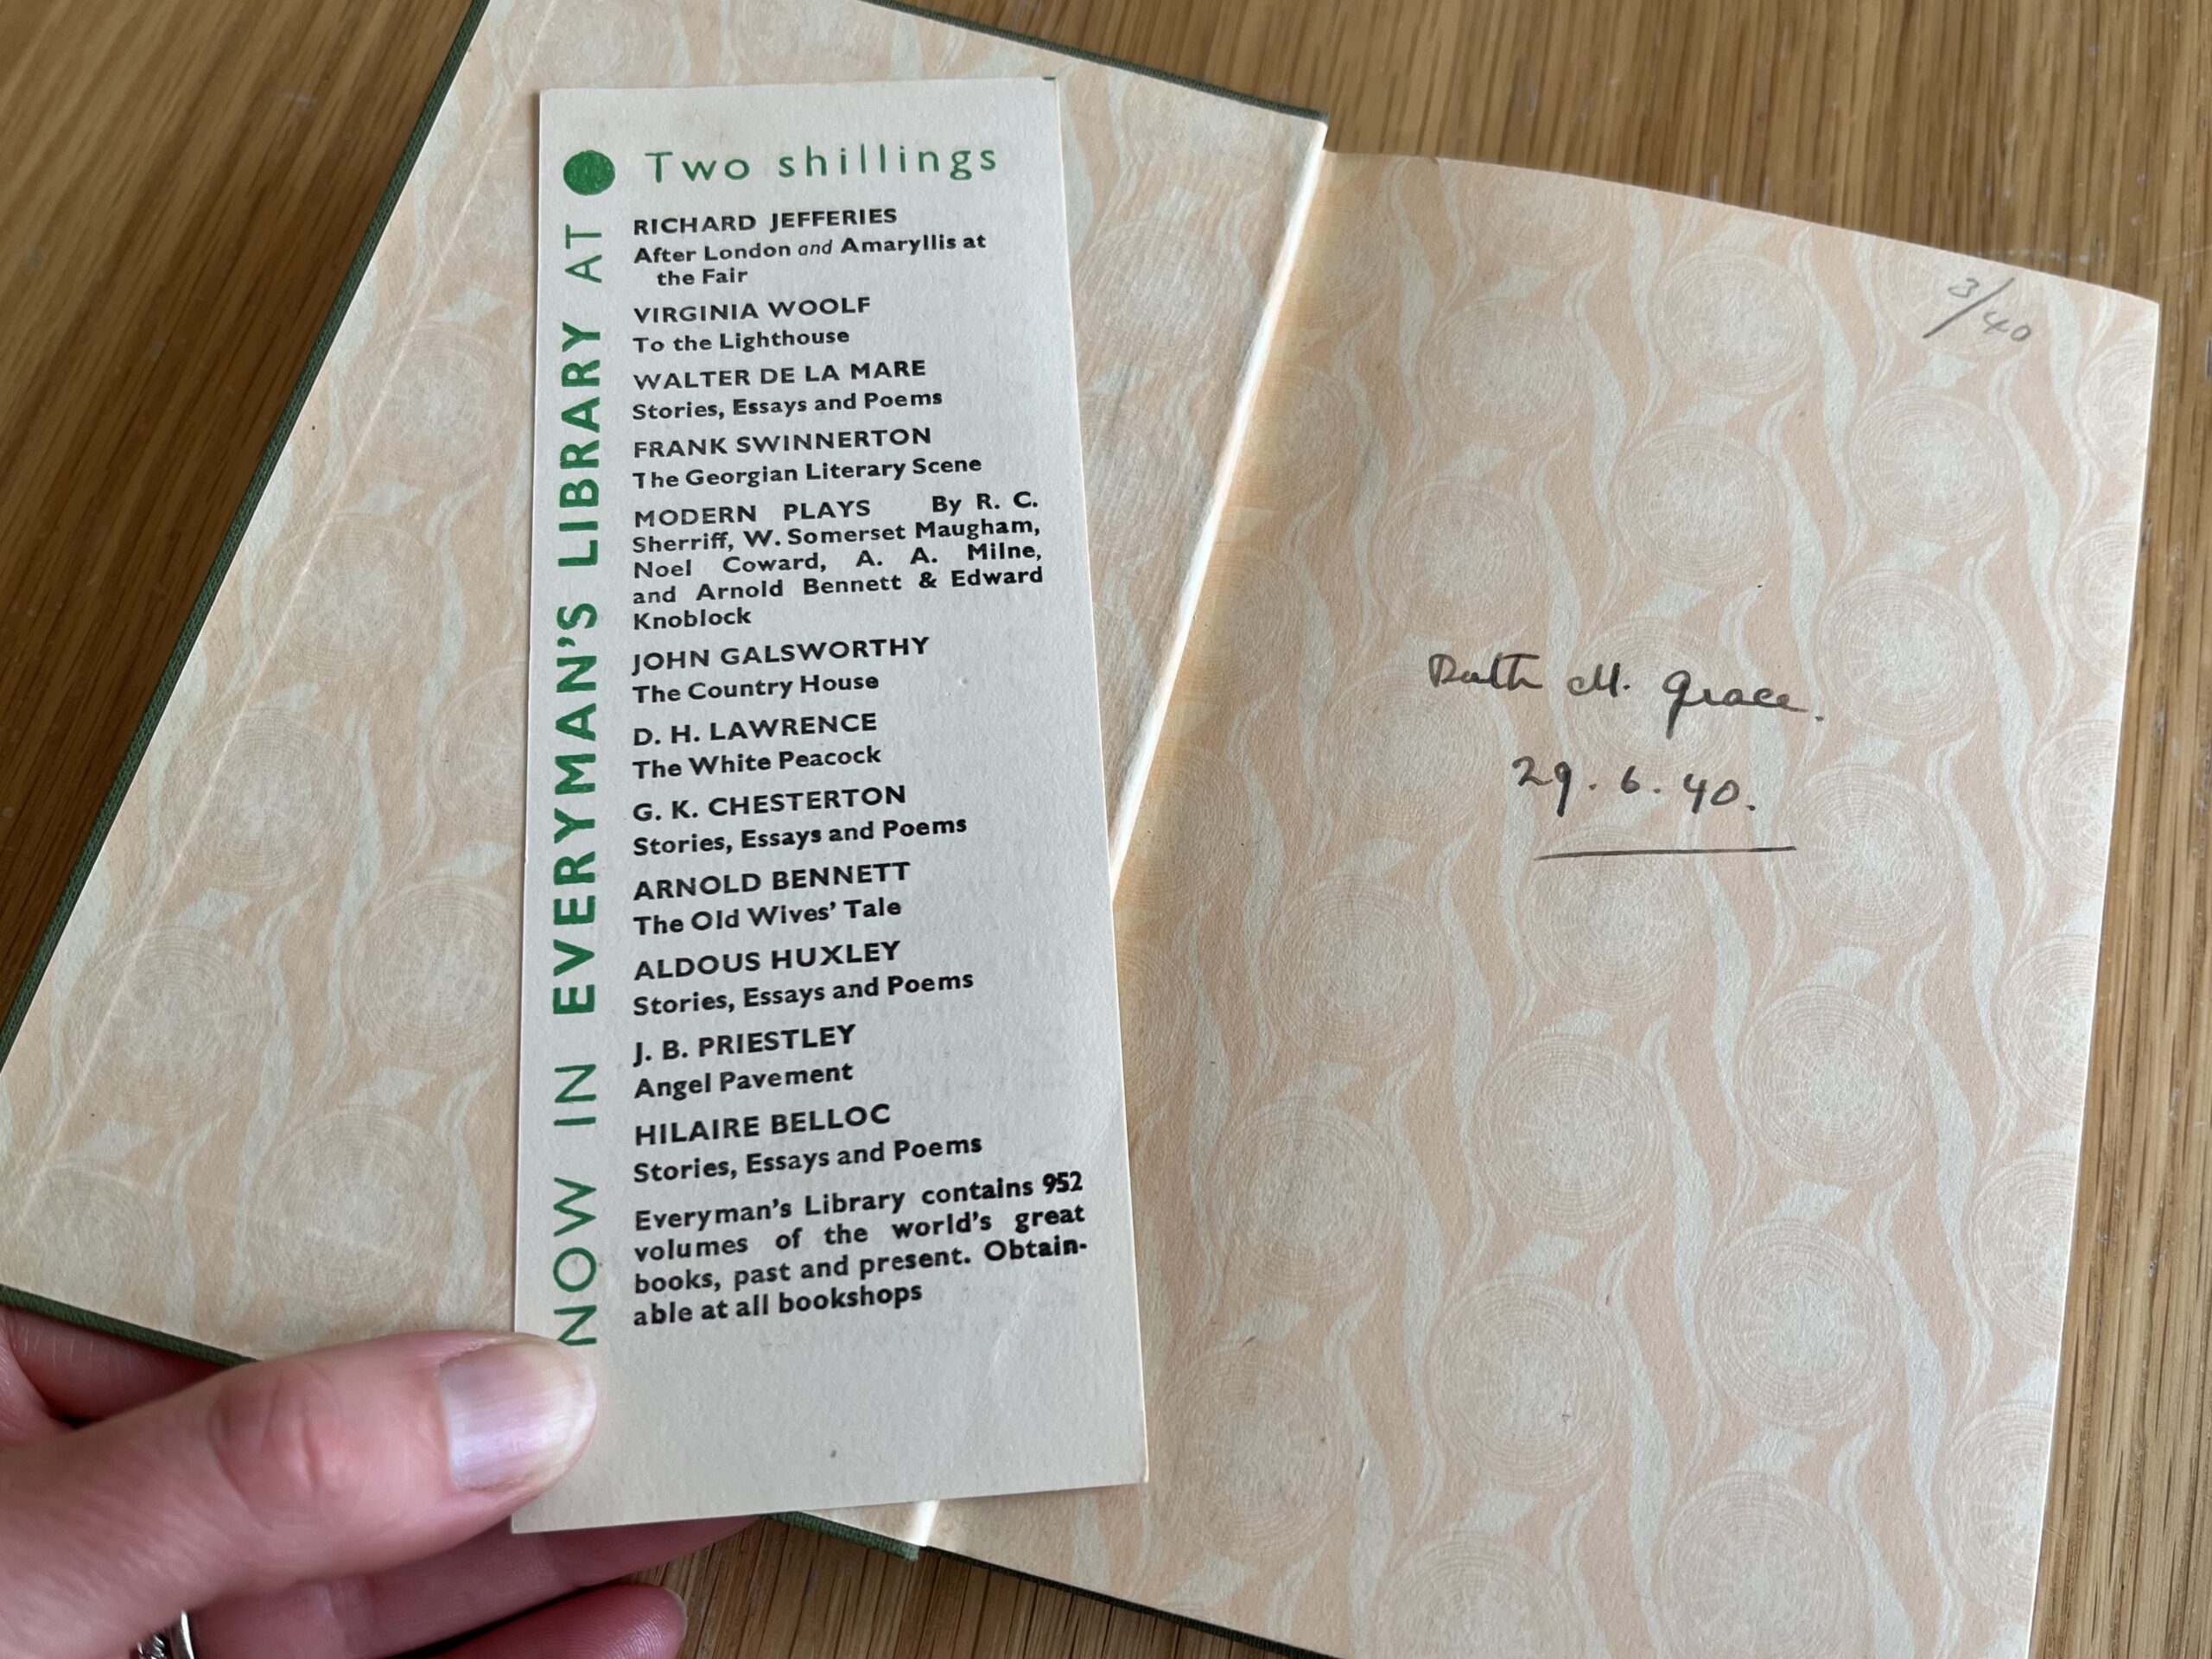 NOW IN EVERYMAN'S LIBRARY AT
Two shillings
RICHARD JEFFERIES
After London and Amaryllis at
the Fair
VIRGINIA WOOLF
To the Lighthouse
WALTER DE LA MARE
Stories, Essays and Poems
FRANK SWINNERTON
The Georgian Literary Scene
MODERN PLAYS By R. C.
Sherriff, W. Somerset Maugham,
Noel Coward, A. A. Milne,
and Arnold Bennett & Edward
Knoblock
JOHN GALSWORTHY
The Country House
D. H. LAWRENCE
The White Peacock
G. K. CHESTERTON
Stories, Essays and Poems
ARNOLD BENNETT
The Old Wives' Tale
ALDOUS HUXLEY
Stories, Essays and Poems
J. B. PRIESTLEY
Angel Pavement
HILAIRE BELLOC
Stories, Essays and Poems
Everyman's Library contains 952
volumes of the world's great
books, past and present. Obtain-
able at all bookshops
3/40
Ruth M. Grace.
29.6.40.